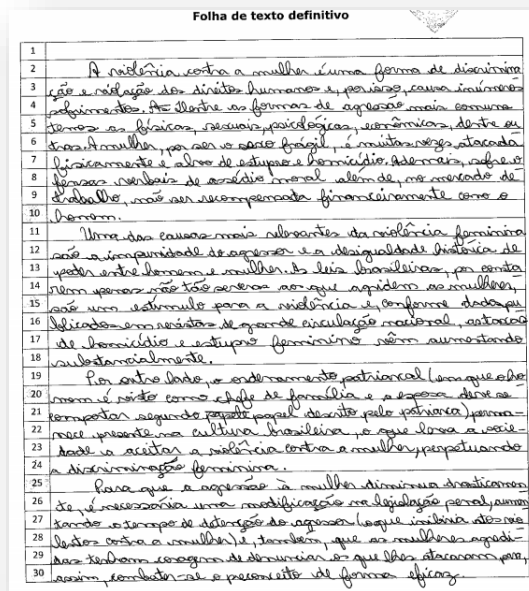 Folha de texto definitivo
1
2 A violência contra a mulher é uma forma de discrimina
3 ção e violação dos direitos humanos e, por isso, causa inúmeros
4 sofrimentos. As Dentre as formas de agressão mais comuns
5 temos as físicas, sexuais, psicológicas, econômicas, dentre ou
6 tras. A mulher, por ser o sexo frágil, é muitas vezes atacada
7 fisicamente e alvo de estupro e homicídio. Ademais, sofre o
8 fensas verbais de assédio moral além de, no mercado de
9 trabalho, não ser recompensada financeiramente como o
10 homem.
11 Uma das causas mais relevantes da violência feminina
12 são a impunidade do agressor e a desigualdade histórica de
13 poder entre homem e mulher. As leis brasileiras, por conta
14 rem penas não tão severas aos que agridem as mulheres,
15 são um estímulo para a violência e, conforme dados pu
16 blicados em revistas de grande circulação nacional, as taxas
17 de homicídio e estupro feminino vêm aumentando
18 substancialmente.
19 Por outro lado, o ordenamento patriarcal (em que o ho
20 mem é visto como chefe de família e a esposa deve se
21 comportar segundo papel descrito pelo patriarca) perma-
22 nece presente na cultura brasileira, o que leva a socie-
23 dade a aceitar a violência contra a mulher, perpetuando
24 a discriminação feminina.
25 Para que a agressão à mulher diminua drasticamen
26 te, é necessária uma modificação na legislação penal, aumen
27 tando o tempo de detenção do agressor (o que inibiria atos vio
28 lentos contra a mulher) e, também, que as mulheres agredi-
29 das tenham coragem de denunciar os que lhes atacaram para,
30 assim, combater-se o preconceito de forma eficaz.